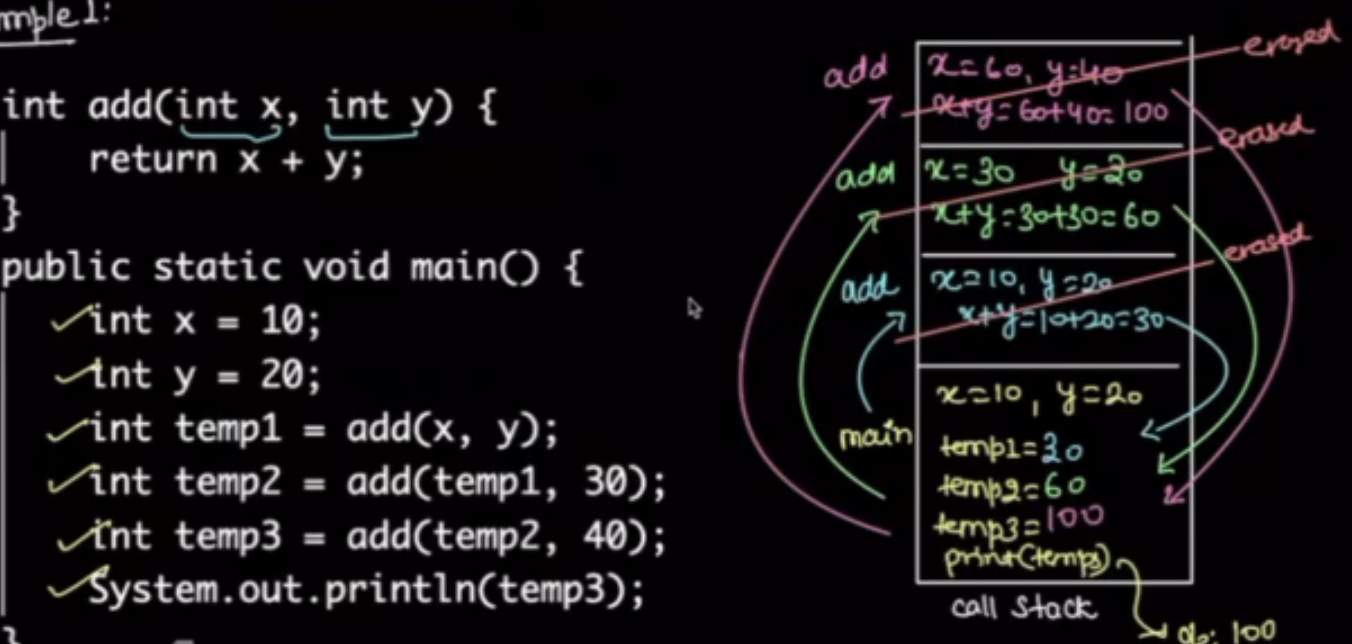 mple 1:
int add(int x, int y) {
return x + y;
}
public static void main() {
int x = 10;
int y = 20;
int temp1 = add(x, y);
int temp2 = add(temp1, 30);
int temp3 = add(temp2, 40);
System.out.println(temp3);
}
add
x=60, y=40
x+y=60+40=100
erased
add
x=30 y=20
x+y=30+30=60
erased
add
x=10, y=20
x+y=10+20=30
erased
main
x=10, y=20
temp1=30
temp2=60
temp3=100
print(temp3)
call stack
o/p: 100